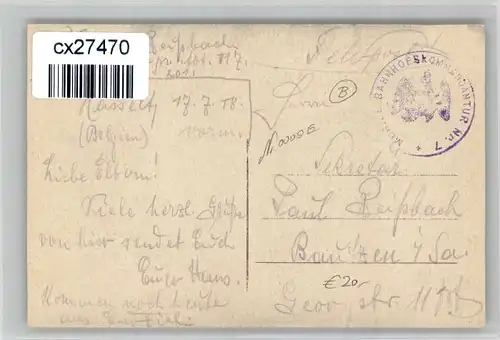 cx27470
Reißbach
Feldpost
MOBILE BAHNHOFSKOMMANDANTUR Nr. 7
B
Hasselt, 17. 7. 18.
(Belgien) vorm.
Liebe Eltern!
Viele herzl. Grüße
von hier sendet Euch
Euer Hans.
Kommen noch heute
Herrn
Sekretär
Paul Reißbach
Bautzen i/Sa.
str. 11
€ 20,-